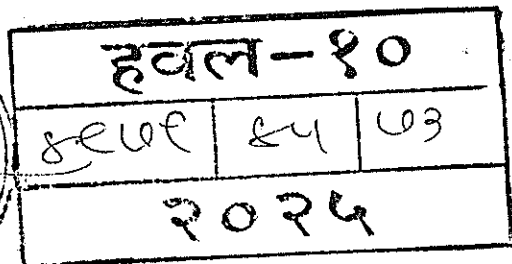 हवल-१०
४९७९ ४५ ७३
२०२५